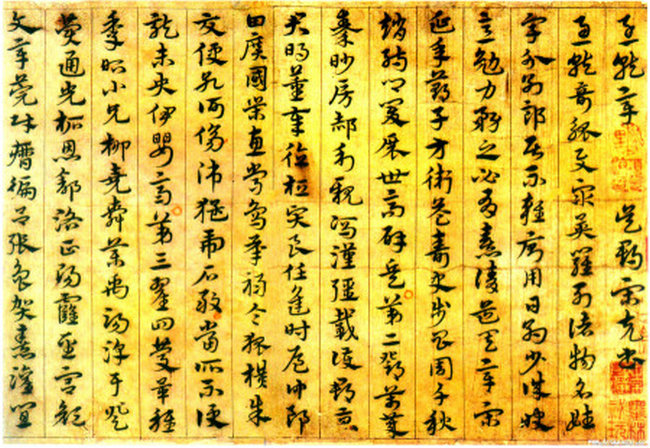 急就章 吳郡宋克書
急就奇觚與眾異羅列諸物名姓
字分別部居不雜廁用日約少誠快
意勉力務之必有憙請道其章宋
延年鄭子方衛益壽史步昌周千秋
趙孺卿爰展世高辟兵第二鄧萬歲
秦眇房郝利親馮漢彊戴護郡景
君明董奉德桓賢良任逢時侯仲郎
由廣國榮惠常烏承祿令狐橫朱
交便孔何傷師猛虎石敢當所不侵
龍未央伊嬰齊第三翟回慶畢稚
季昭小兄柳堯舜藥禹湯淳于登
費通光柘恩舒路正陽霍聖宮顏
文章莞財歷偏呂張魯賀憙灌宜